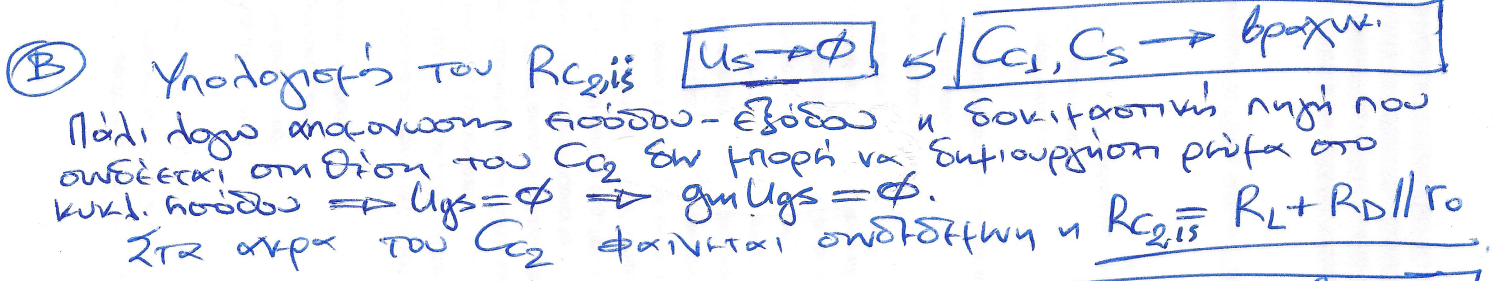 Β Υπολογισμός του R_{C2,ις} U_S → ∅ 5' C_{C1}, C_S → βραχυκ.
Πάλι λόγω απομονωσης εισόδου-εξόδου η δοκιμαστική πηγή που
συνδέεται στη θέση του C_{C2} δεν μπορή να δημιουργήση ρεύμα στο
κυκλ. εισόδου ⇒ Ugs = ∅ ⇒ gm Ugs = ∅.
Στα ακρα του C_{C2} φαίνεται συνδεδεμένη η R_{C2,ις} = R_L + R_D // r_o